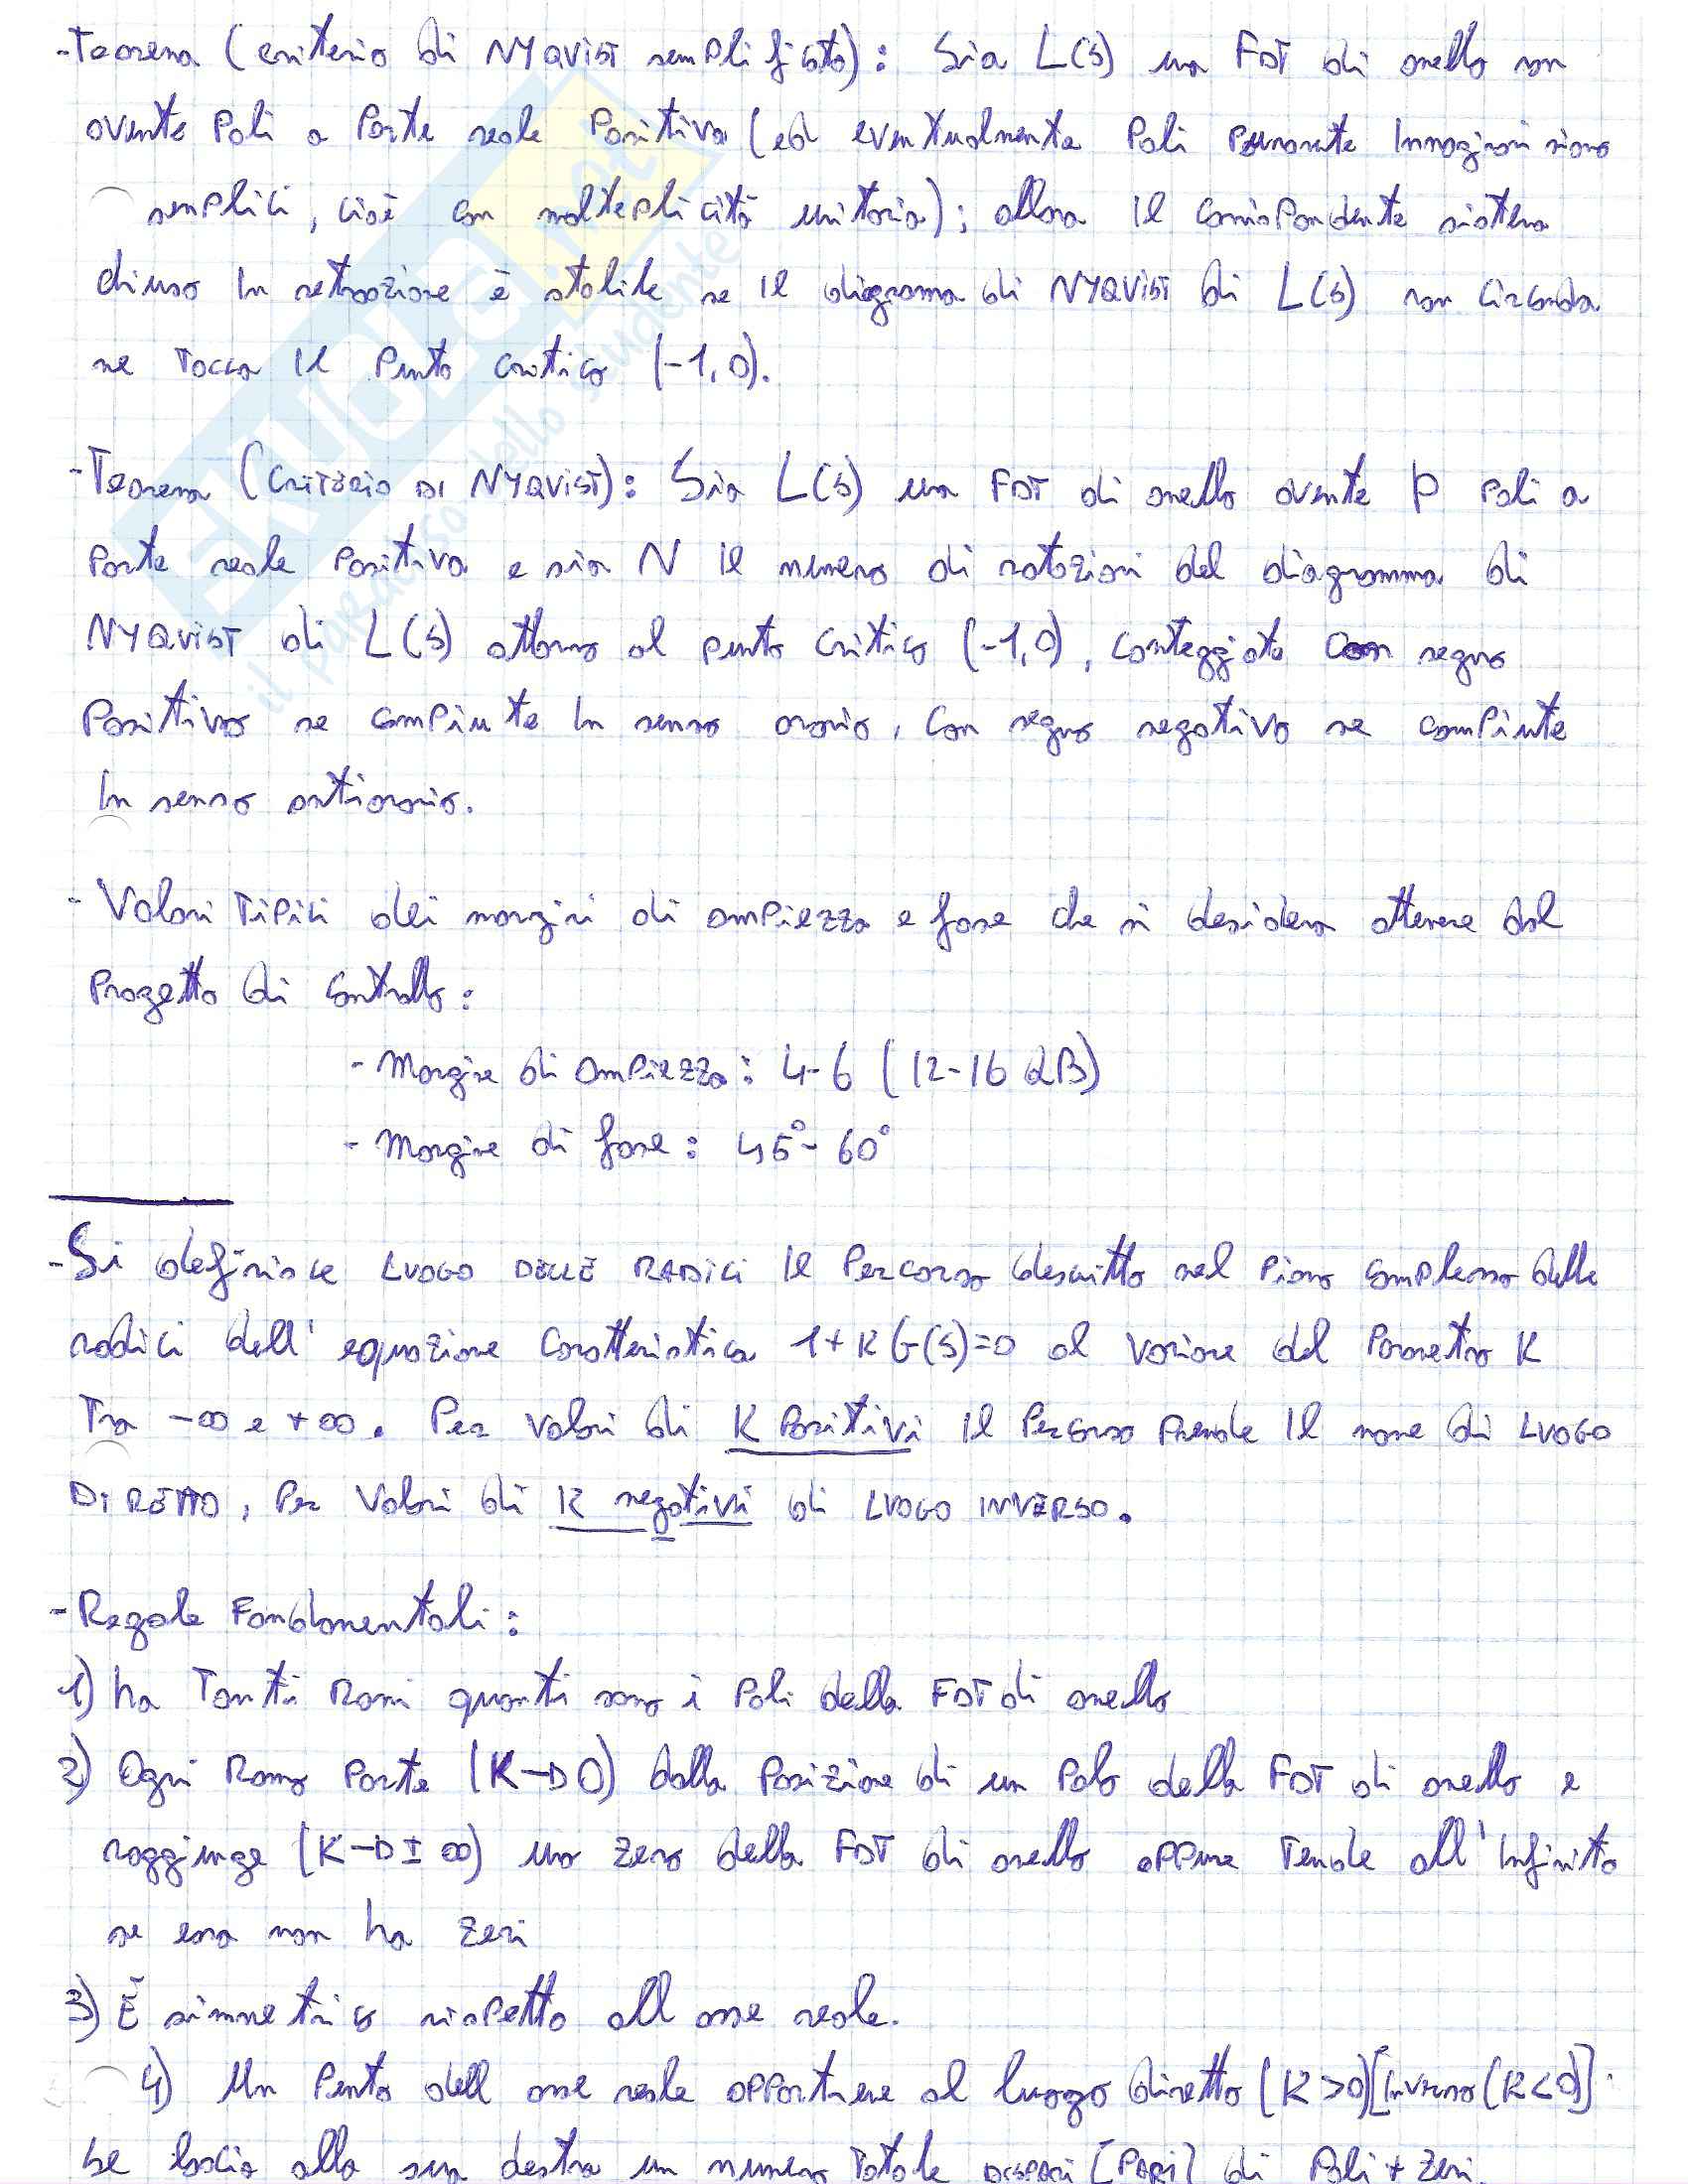 - Teorema (criterio di NYQVIST semplificato): Sia L(s) una FDT di anello non
avente Poli a Parte reale Positiva (ed eventualmente Poli Puramente Immaginari siano
semplici, cioè con molteplicità unitaria); allora il corrispondente sistema
chiuso in retroazione è stabile se il diagramma di NYQVIST di L(s) non circonda
ne tocca il Punto critico (-1,0).
- Teorema (CRITERIO DI NYQVIST): Sia L(s) una FDT di anello avente p poli a
Parte reale Positiva e sia N il numero di rotazioni del diagramma di
NYQVIST di L(s) attorno al punto critico (-1,0), conteggiate con segno
Positivo se compiute in senso orario, con segno negativo se compiute
in senso antiorario.
- Valori tipici dei margini di ampiezza e fase che si desidera ottenere dal
Progetto di controllo:
- Margine di ampiezza: 4-6 (12-16 dB)
- Margine di fase: 45°-60°
- Si definisce LUOGO DELLE RADICI il Percorso descritto nel Piano complesso dalle
radici dell'equazione caratteristica 1+KG(s)=0 al variare del Parametro K
Tra -∞ e +∞. Per valori di K Positivi il Percorso prende il nome di LUOGO
DIRETTO, Per valori di K negativi di LUOGO INVERSO.
- Regole Fondamentali:
1) ha Tanti Rami quanti sono i Poli della FDT di anello
2) Ogni Ramo Parte (K→0) dalla Posizione di un Polo della FDT di anello e
raggiunge (K→±∞) uno zero della FDT di anello oppure Tende all'infinito
se essa non ha zeri
3) È simmetrico rispetto all asse reale.
4) Un Punto dell asse reale appartiene al luogo diretto (K>0)[inverso(K<0)]
se lascia alla sua destra un numero totale DISPARI [PARI] di Poli + zeri.
il paradiso dello studente